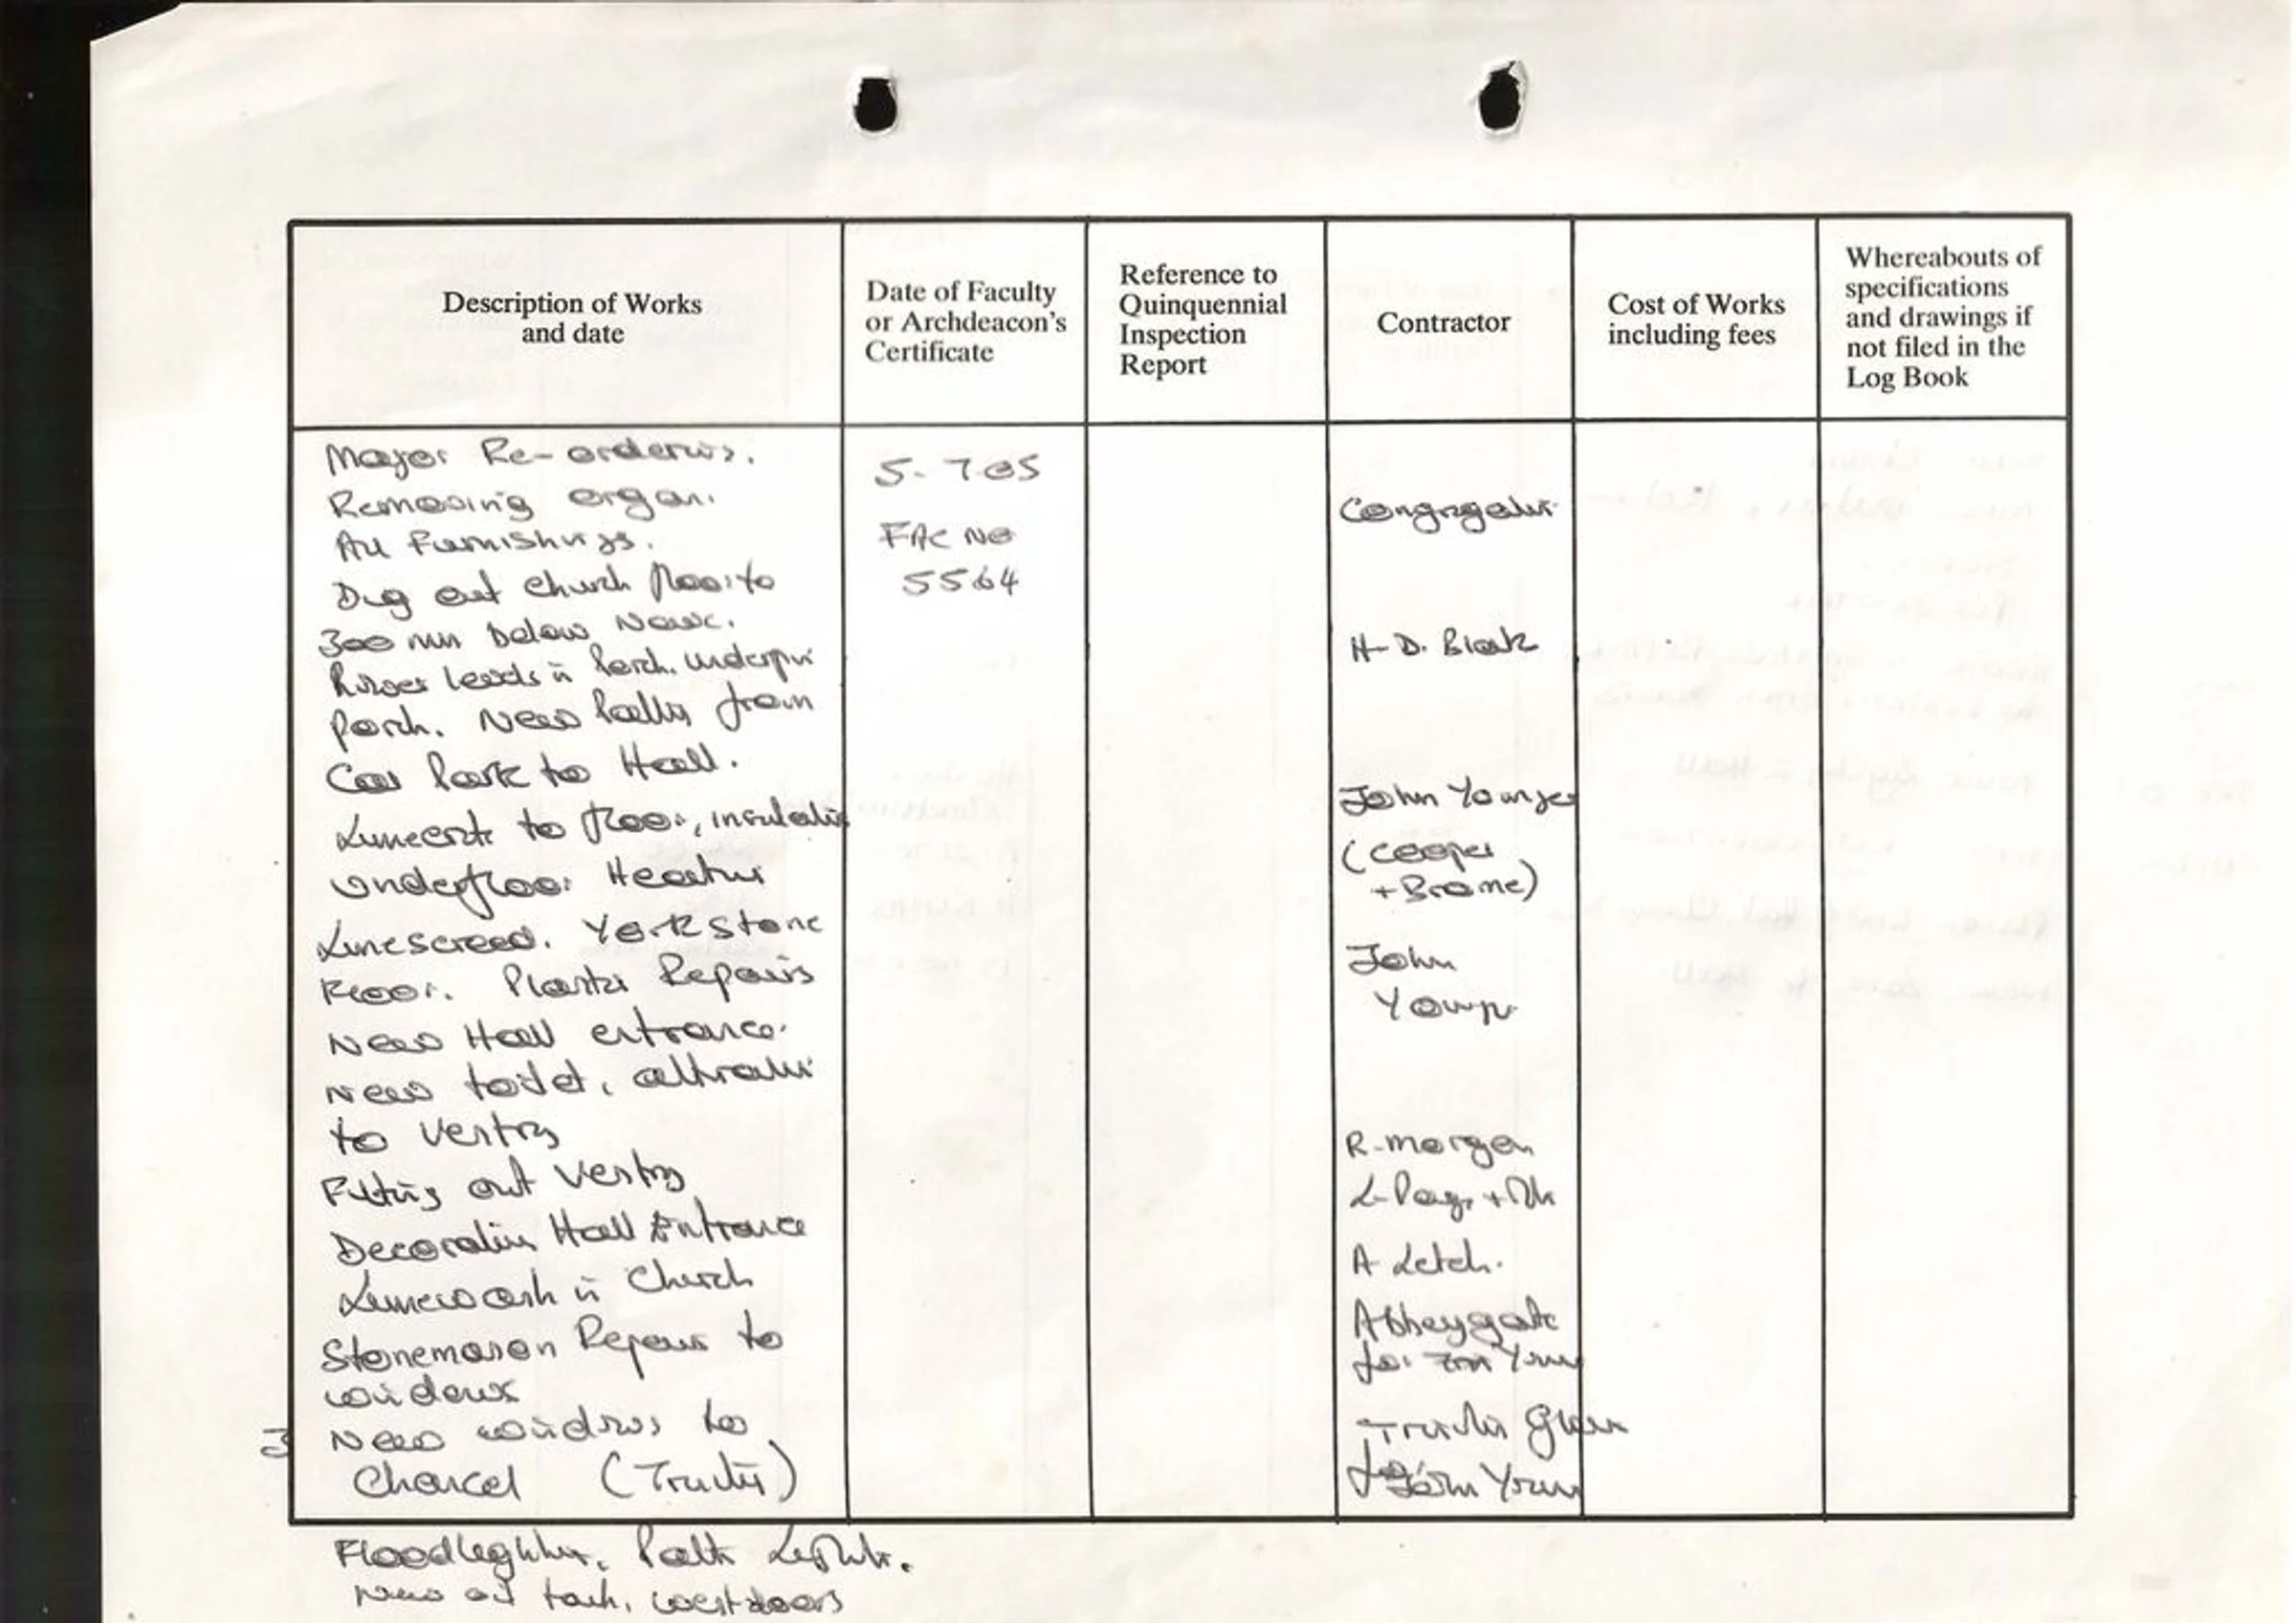 Description of Works
and date
Date of Faculty
or Archdeacon's
Certificate
Reference to
Quinquennial
Inspection
Report
Contractor
Cost of Works
including fees
Whereabouts of
specifications
and drawings if
not filed in the
Log Book
Major Re-ordering.
Removing organ.
All Furnishings.
Dug out church floor to
300 mm below Nave.
leads in Porch. underpin
Porch. New Path from
Car Park to Hall.
Limecrete to floor, insulation
Underfloor Heating
Limescreed. York Stone
Floor. Plaster Repairs
New Hall entrance.
New toilet, alteration
to Vestry
Fitting out Vestry
Decorating Hall Entrance
Limewash in Church
Stonemason Repairs to
windows
3 New windows to
Chancel (Trinity)
Floodlighting, Path Lights.
New oil tank, west doors
5-7-05
FAC No
5564
Congregation
H-D. Black
John Younger
(Cooper
+ Brome)
John
Young
R-Morgan
L-Page +
A Letch.
Abbeygate
for Young
Trinity Glass
for John Young